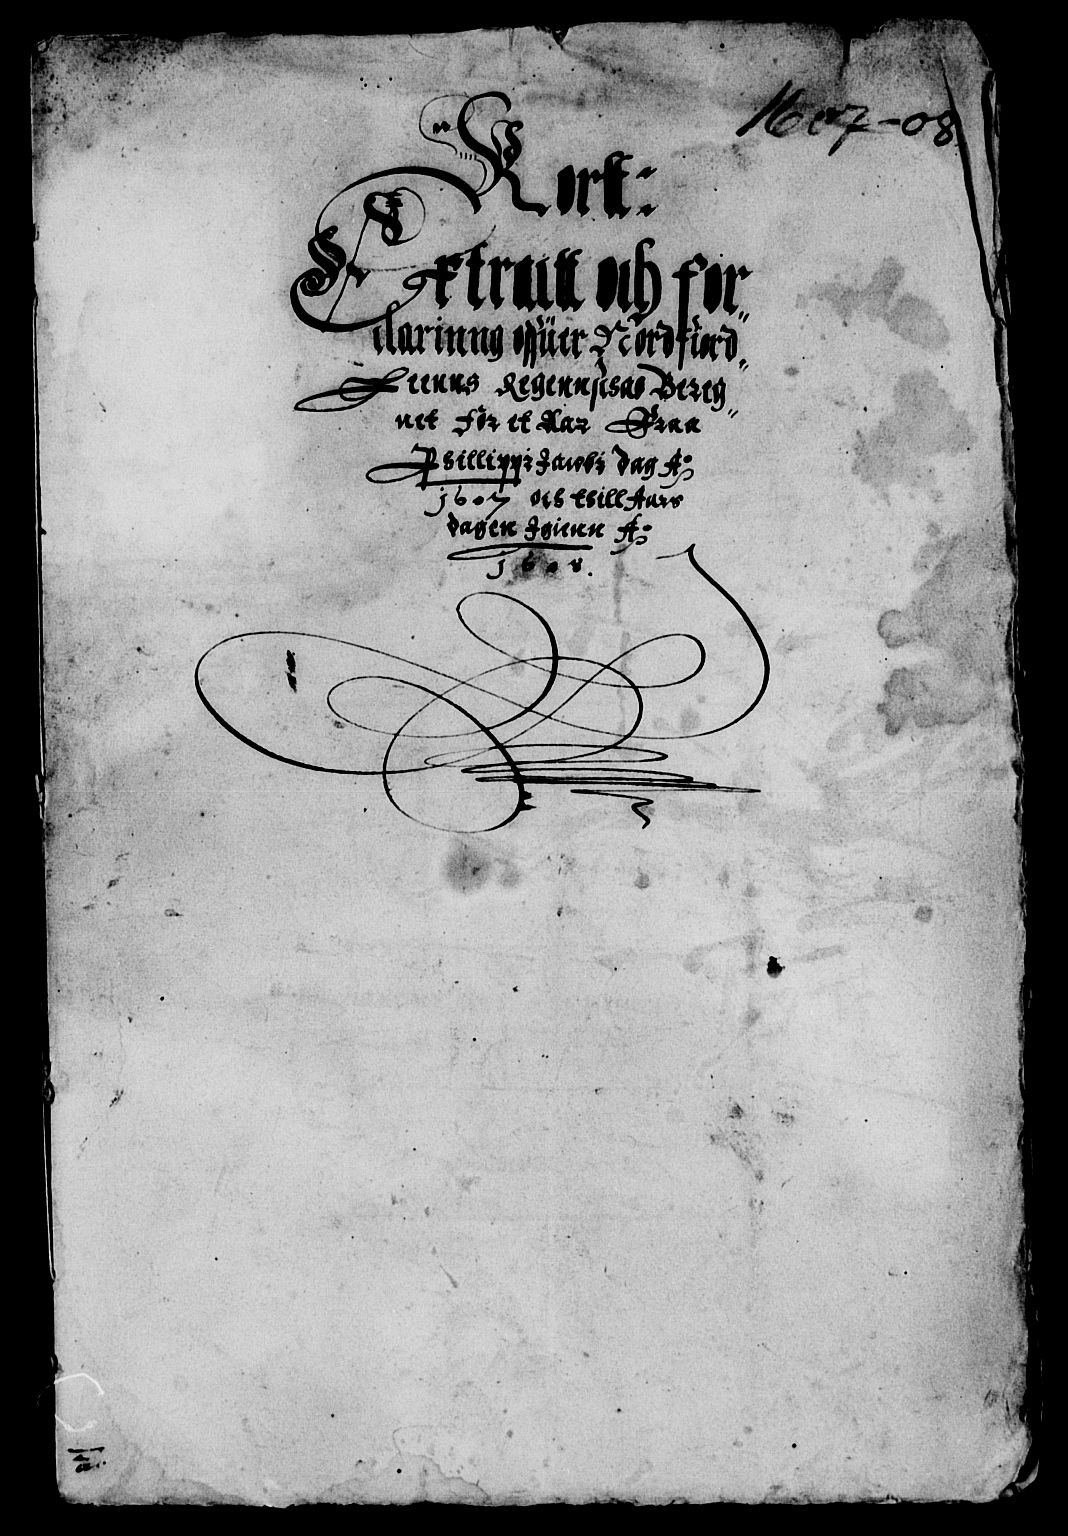 1607-08
Kort:
Extraitt och for,,
clarinng offüer Nordfiord,,
Leenns Regennscsas Bereg,,
net för et Aar Fraa
Phillippi Jacobi dag A:
1607 och thill Aars
dagen Igienn A:
1608.